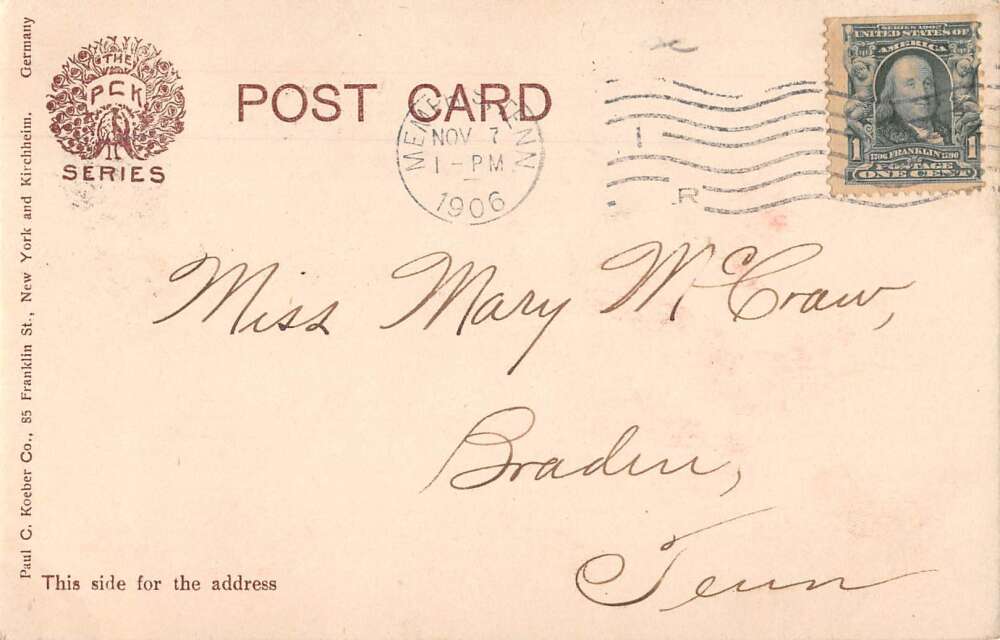 THE
PCK
SERIES
POST CARD
MEMPHIS, TENN
NOV 7
1-PM
1906
1
R
SERIES 1902
UNITED STATES OF
AMERICA
1706 FRANKLIN 1790
1 1
POSTAGE
ONE CENT
Miss Mary McCraw,
Braden,
Tenn
This side for the address
Paul C. Koeber Co., 85 Franklin St., New York and Kirchheim, Germany